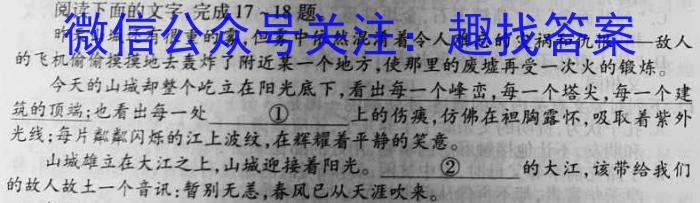 阅读下面的文字,完成17~18题。
微信公众号关注：趣找答案
敌人
的飞机偷偷摸摸地去轰炸了附近某一个地方,使那里的废墟再受一次火的锻炼。
今天的山城却整个屹立在阳光底下,看出每一个峰峦,每一个塔尖,每一个建
筑的顶端;也看出每一处 ① 上的伤痍,仿佛在袒胸露怀,吸取着紫外
光线;每片粼粼闪烁的江上波纹,在辉耀着平静的笑意。
山城雄立在大江之上,山城迎接着阳光。 ② 的大江,该带给我们
的故人故土一个音讯:暂别无恙,春风已从天涯吹来。